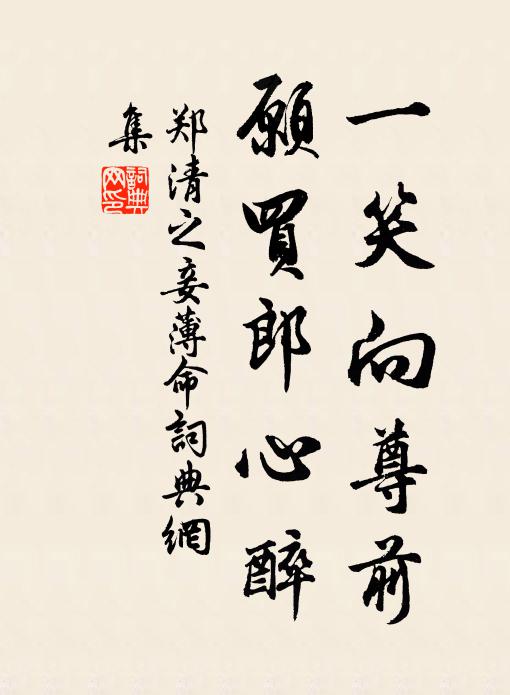 一笑向尊前
願買郎心醉
郑清之妾薄命詞典網
集
詞典网印